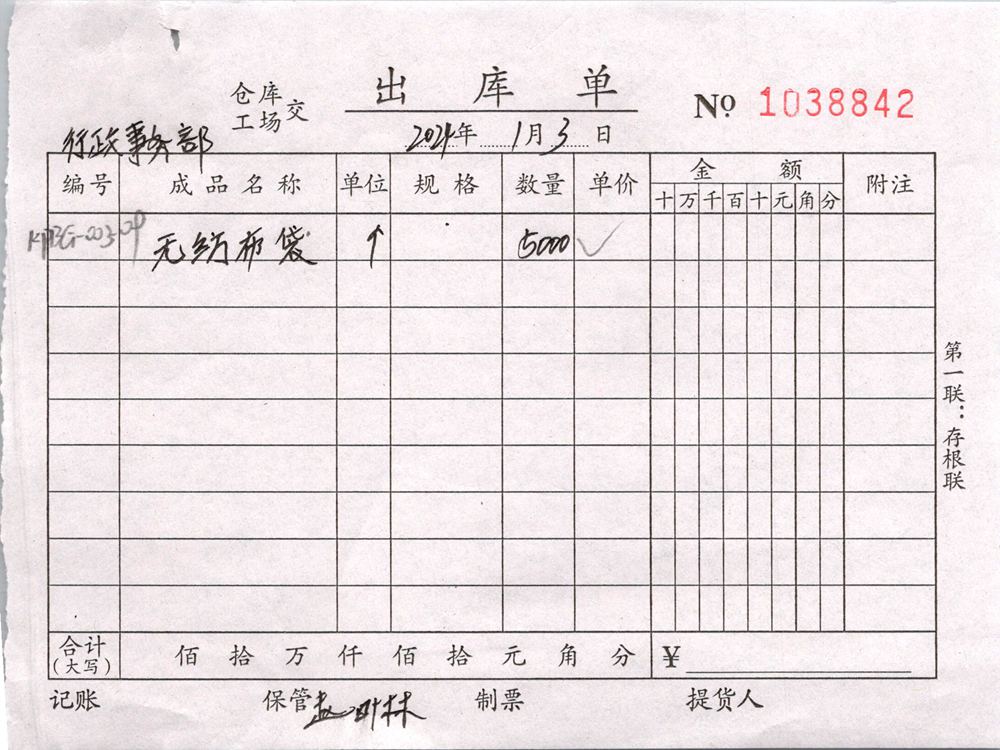 出库单
仓库
工场 交
№ 1038842
行政事务部
2021年 1月 3 日
编号 成品名称 单位 规格 数量 单价 金额 附注
十 万 千 百 十 元 角 分
无纺布袋 个 5000 ✓
第一联：存根联
合计 佰 拾 万 仟 佰 拾 元 角 分 ¥
(大写)
记账 保管 制票 提货人